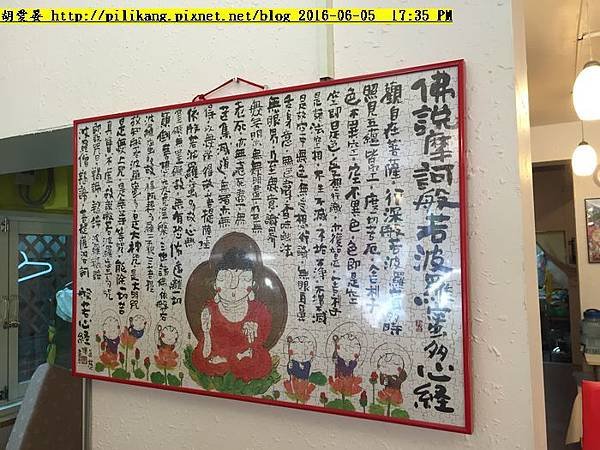 胡雯晏 http://pilikang.pixnet.net/blog 2016-06-05  17:35 PM
佛說摩訶般若波羅蜜多心經
觀自在菩薩 行深般若波羅蜜多時
照見五蘊皆空 度一切苦厄 舍利子
色不異空 空不異色 色即是空
空即是色 受想行識 亦復如是 舍利子
是諸法空相 不生不滅 不垢不淨 不增不減
是故空中無色 無受想行識 無眼耳鼻
舌身意 無色聲香味觸法
無眼界 乃至無意識界
無無明 亦無無明盡 乃至無
老死 亦無老死盡 無
苦集滅道 無智亦無
得 以無所得故 菩提薩埵
依般若波羅蜜多故 心無
罣礙 無罣礙故 無有恐怖 遠離一切
顛倒夢想 究竟涅槃 三世諸佛 依般若
波羅蜜多故 得阿耨多羅三藐三菩提
故知般若波羅蜜多 是大神咒 是大明咒
是無上咒 是無等等咒 能除一切苦
真實不虛 故說般若波羅蜜多咒
即說咒曰 揭諦 揭諦 波羅揭諦
波羅僧揭諦 菩提薩婆訶 般若心經